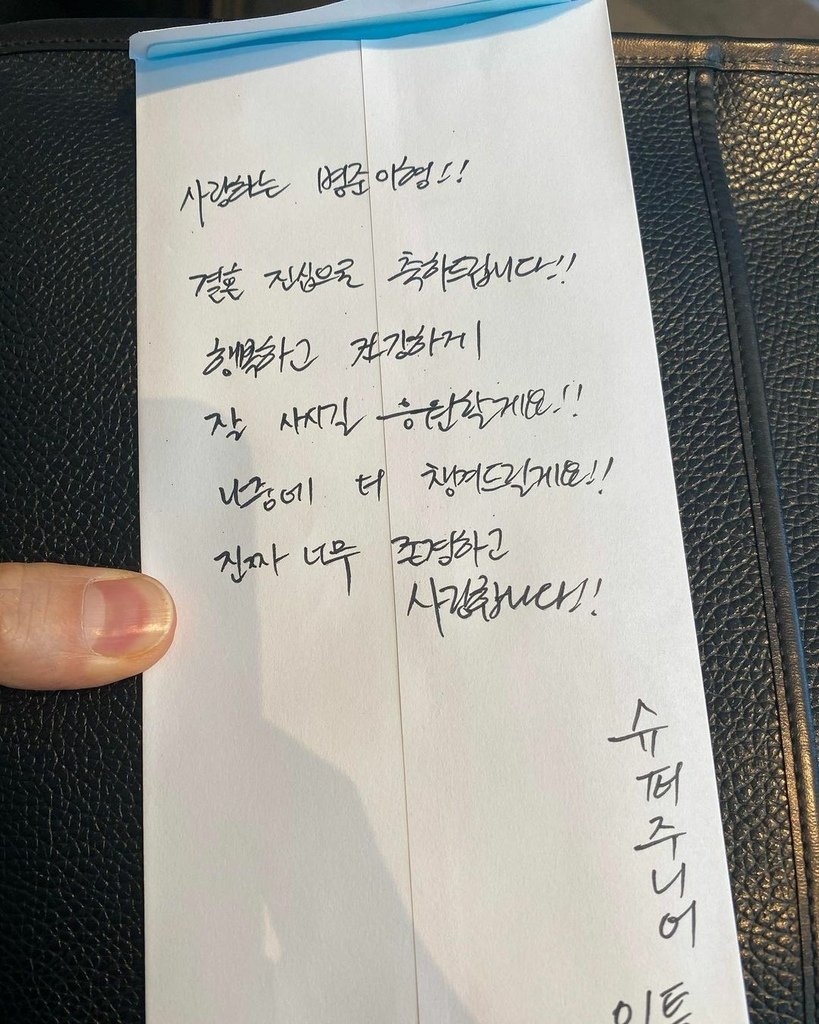 사랑하는 병준이형!!
결혼 진심으로 축하드립니다!!
행복하고 건강하게
잘 사시길 응원할게요!!
나중에 더 챙겨드릴게요!!
진짜 너무 존경하고
사랑합니다!!
슈퍼주니어
이특